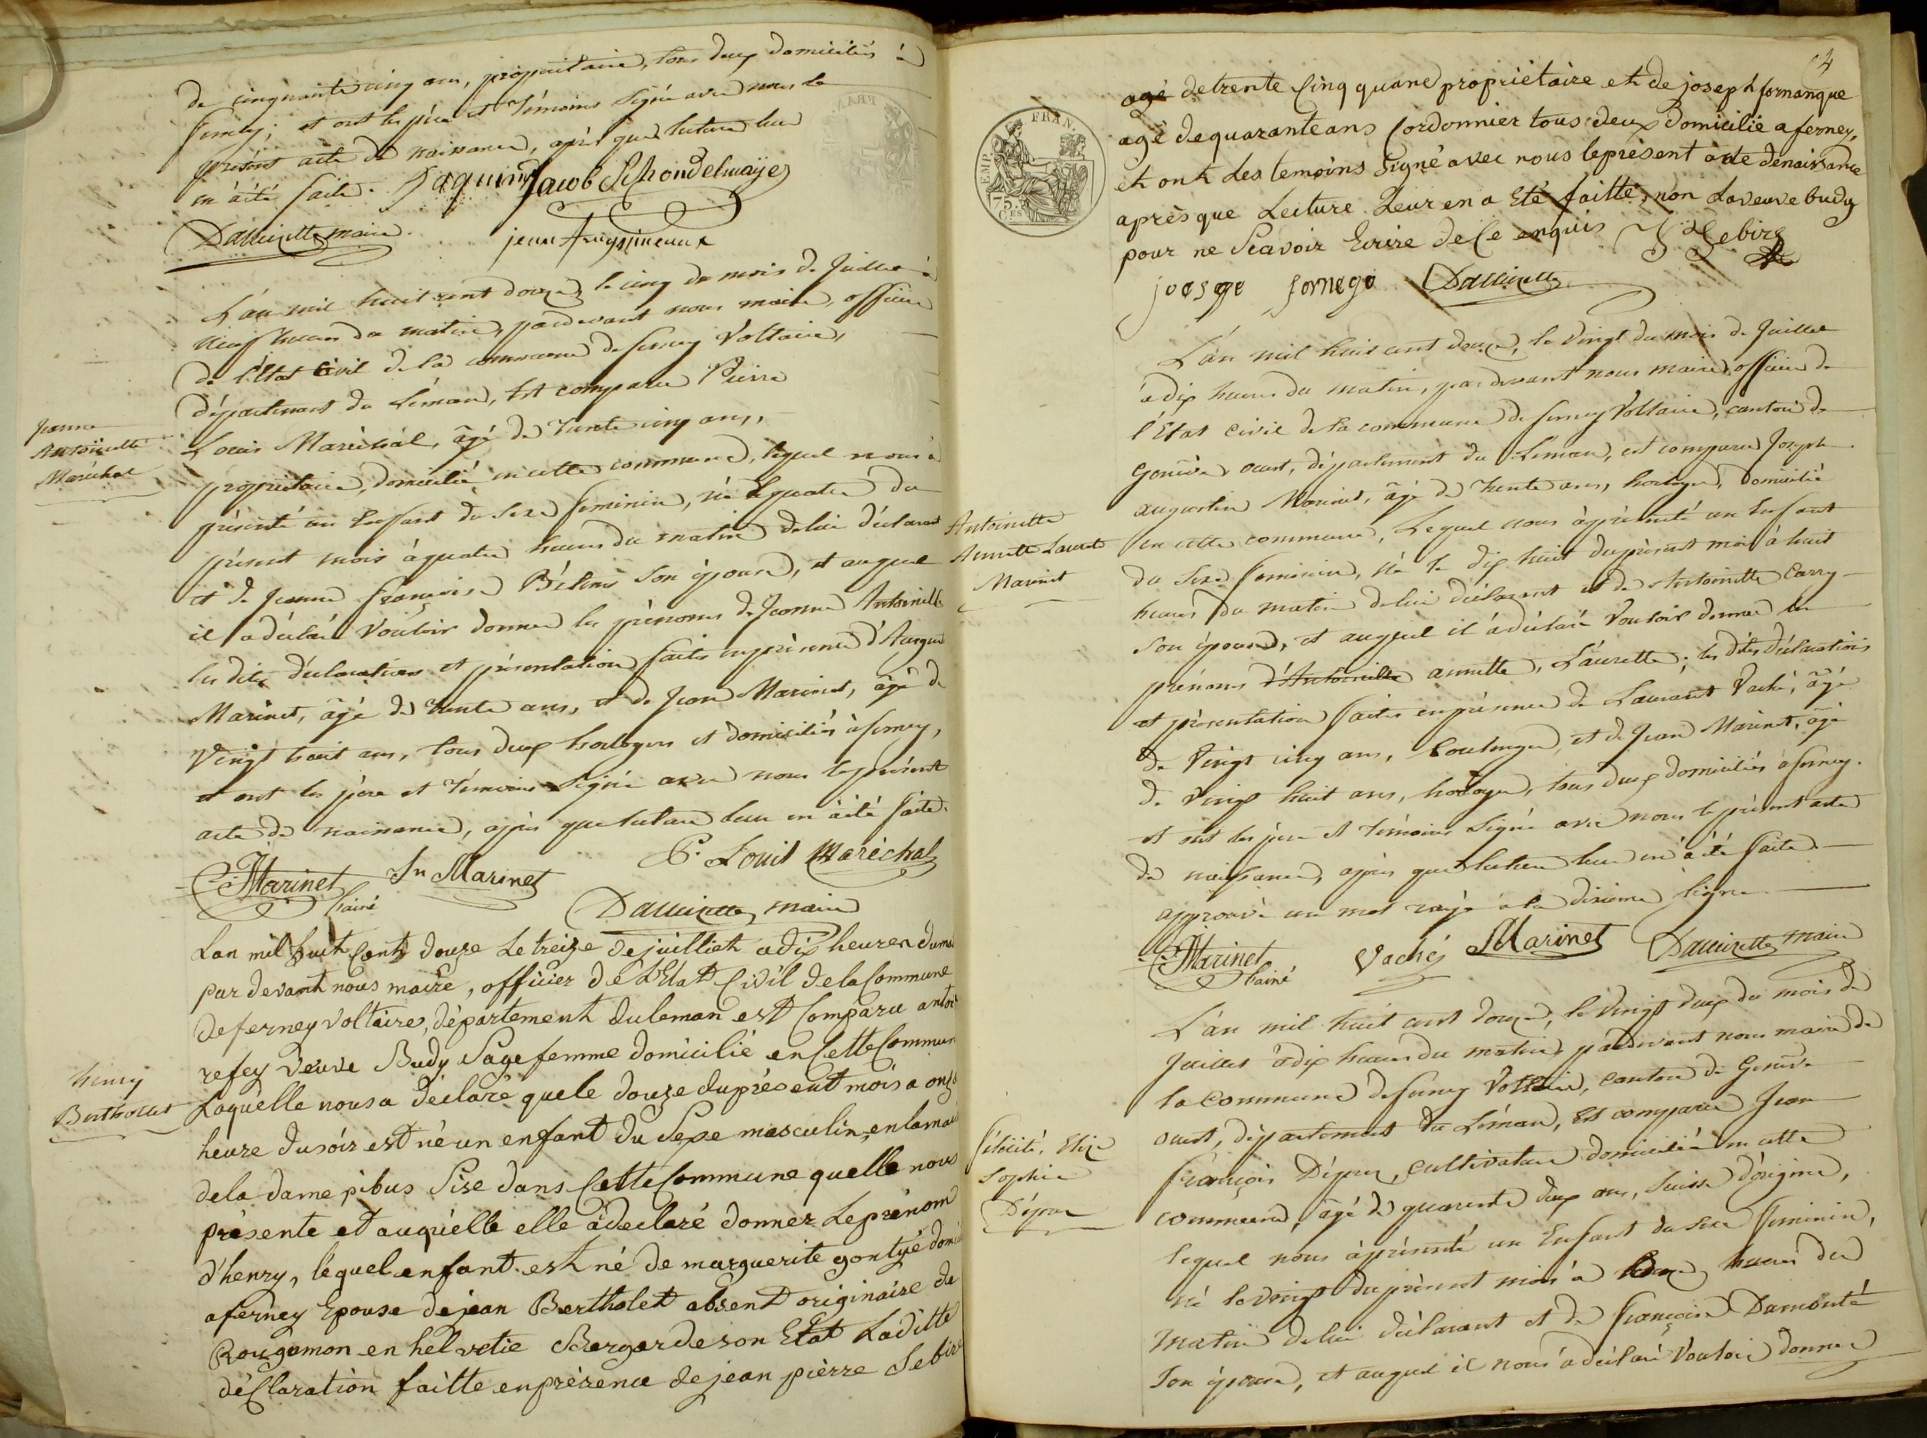 de cinquante cinq ans, propriétaire, tous deux domiciliés à
ferney; et ont les père et témoins signé avec nous le
présent acte de naissance, après que lecture leur
en a été faite. Jaquin Jacob Schondelmayer
Daucinette maire.
jean
L'an mil huit cent douze, le cinq du mois de Juillet à
neuf heures du matin, pardevant nous maire, officier
de l'Etat Civil de la commune de ferney Voltaire,
département du Léman, Est comparu Pierre
Jeanne
Antoinette
Maréchal
Louis Maréchal, âgé de trente cinq ans,
propriétaire, domicilié en cette commune, lequel nous à
présenté un Enfant du Sexe feminin, née le quatre du
présent mois à quatre heures du matin de lui déclarant
et de Jeanne françoise son épouse, et auquel
il a déclaré Vouloir donner les prénoms de Jeanne Antoinette
les dites déclaration et présentation faites en présence d'
Marinet, âgé de trente ans, et de Jean Marinet, âgé de
Vingt huit ans, tous deux horlogers et domiciliés à ferney,
et ont les père et témoins signé avec nous le présent
acte de naissance, après que lecture leur en a été faite.
Marinet Jn Marinet P. Louis Maréchal
l'ainé
Daucinette, maire
Lan mil huit Cents douze Le treize de juilliet a dix heures du ma
par devant nous maire, officier de L'Etat Civil de la Commune
de ferney voltaire, département du leman est Comparu antoi
refey veuve Budy Sage femme domicilié en Cette Commun
henry
Bertholet
Laquelle nous a déclaré que le douze du présent mois a onze
heure du soir est né un enfant du Sexe masculin, en la mai
de la dame pibus Size dans Cette Commune quelle nous
présente et auquelle elle à declaré donner Le prénom
d'henry, lequel enfant est né de marguerite gontyé domi
a ferney Epouse de jean Bertholet absent originaire de
Rougemon en helvetie Berger de son Etat La ditte
déClaration faitte en présence de jean pièrre Sebir
14
agé de trente Cinq quane propriétaire et de joseph fornanque
agé de quarante ans Cordonnier tous deux domicilié a ferney,
et ont les temoins Signé avec nous le présent acte de naissance
après que Lecture Leur en a Eté faitte, non La veuve budy
pour ne Scavoir Ecrire de Ce enquis Sebire
joosge fornego Daucinette
EMP. FRAN.
75 Ces
L'an mil huit cent douze, le vingt du mois de Juillet
à dix heures du matin, par devant nous maire, officier de
l'Etat civil de la commune de ferney Voltaire, canton de
Genêve ouest, département du Léman, est comparu Joseph
augustin Marinet, âgé de trente ans, horloger, domicilié
Antoinette
Annette Laurette
Marinet
en cette commune, Lequel nous à présenté un Enfant
du Sexe feminin, née le dix huit du présent mois à huit
heures du matin de lui déclarant et de Antoinette Carry
son épouse, et auquel il à déclaré Vouloir donner les
prénoms d'Antoinette annette, Laurette; les dites déclarations
et présentation faites en présence de Laurent Vaché, âgé
de Vingt cinq ans, boulanger, et de Jean Marinet, âgé
de Vingt huit ans, horloger, tous deux domiciliés à ferney.
et ont les père et témoins signé avec nous le présent acte
de naissance, après que lecture leur en a été faite.
approuvé un mot rayé à la dixième ligne
Marinet Vaché Marinet Daucinette maire
l'ainé
L'an mil huit cent douze, le Vingt deux du mois de
Juillet à dix heures du matin, pardevant nous maire de
la Commune de ferney Voltaire, canton de Genêve
ouest, département du Léman, Est comparu Jean
félicité, Elize
Sophie
Dépraz
françois Dépraz, cultivateur domicilié en cette
commune, âgé de quarante deux ans, Suisse d'origine,
lequel nous à présenté un Enfant du Sexe feminin,
né le vingt du présent mois à heures du
matin de lui déclarant et de françoise Damonté
son épouse, et auquel il nous a déclaré Vouloir donner